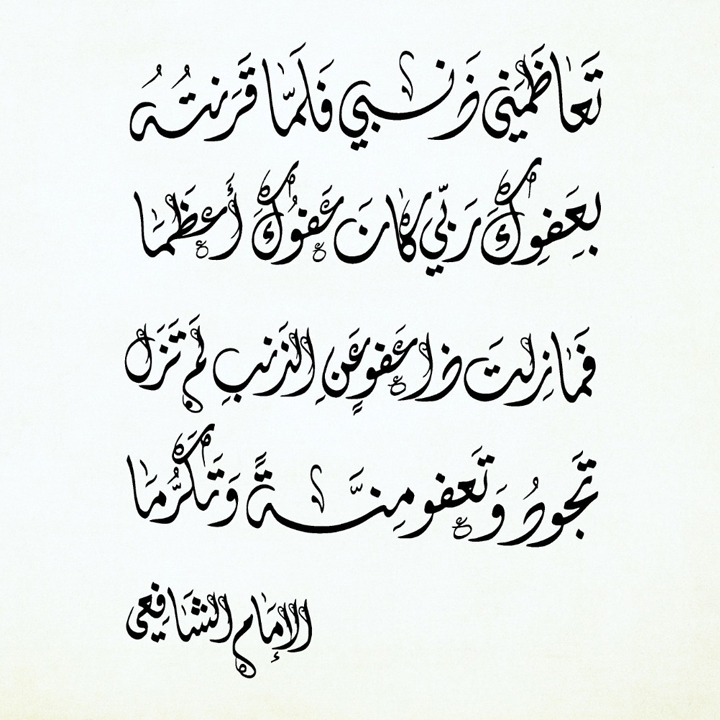 تَعَاظَمَني ذَنبي فَلَمّا قَرَنتُهُ
بِعَفوِكَ رَبّي كانَ عَفوُكَ أَعظَمَا
فَمَا زِلتَ ذا عَفوٍ عَنِ الذَنبِ لَم تَزَل
تَجودُ وَتَعفو مِنَّةً وَتَكَرُّمَا
الإمَام الشَافِعِي